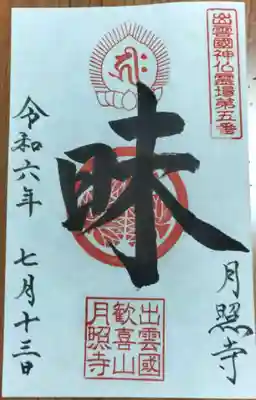 出雲國神仏霊場第五番
月照寺
昧
出雲國
歓喜山
月照寺
令和六年 七月十三日